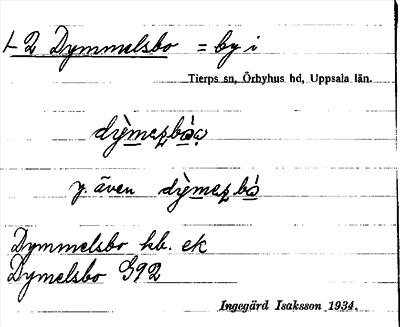 + 2 Dymmelsbo = by i
Tierps sn, Örbyhus hd, Uppsala län.
y. även
Dymmelsbo kb. ek
Dymelsbo G92
Ingegärd Isaksson 1934.